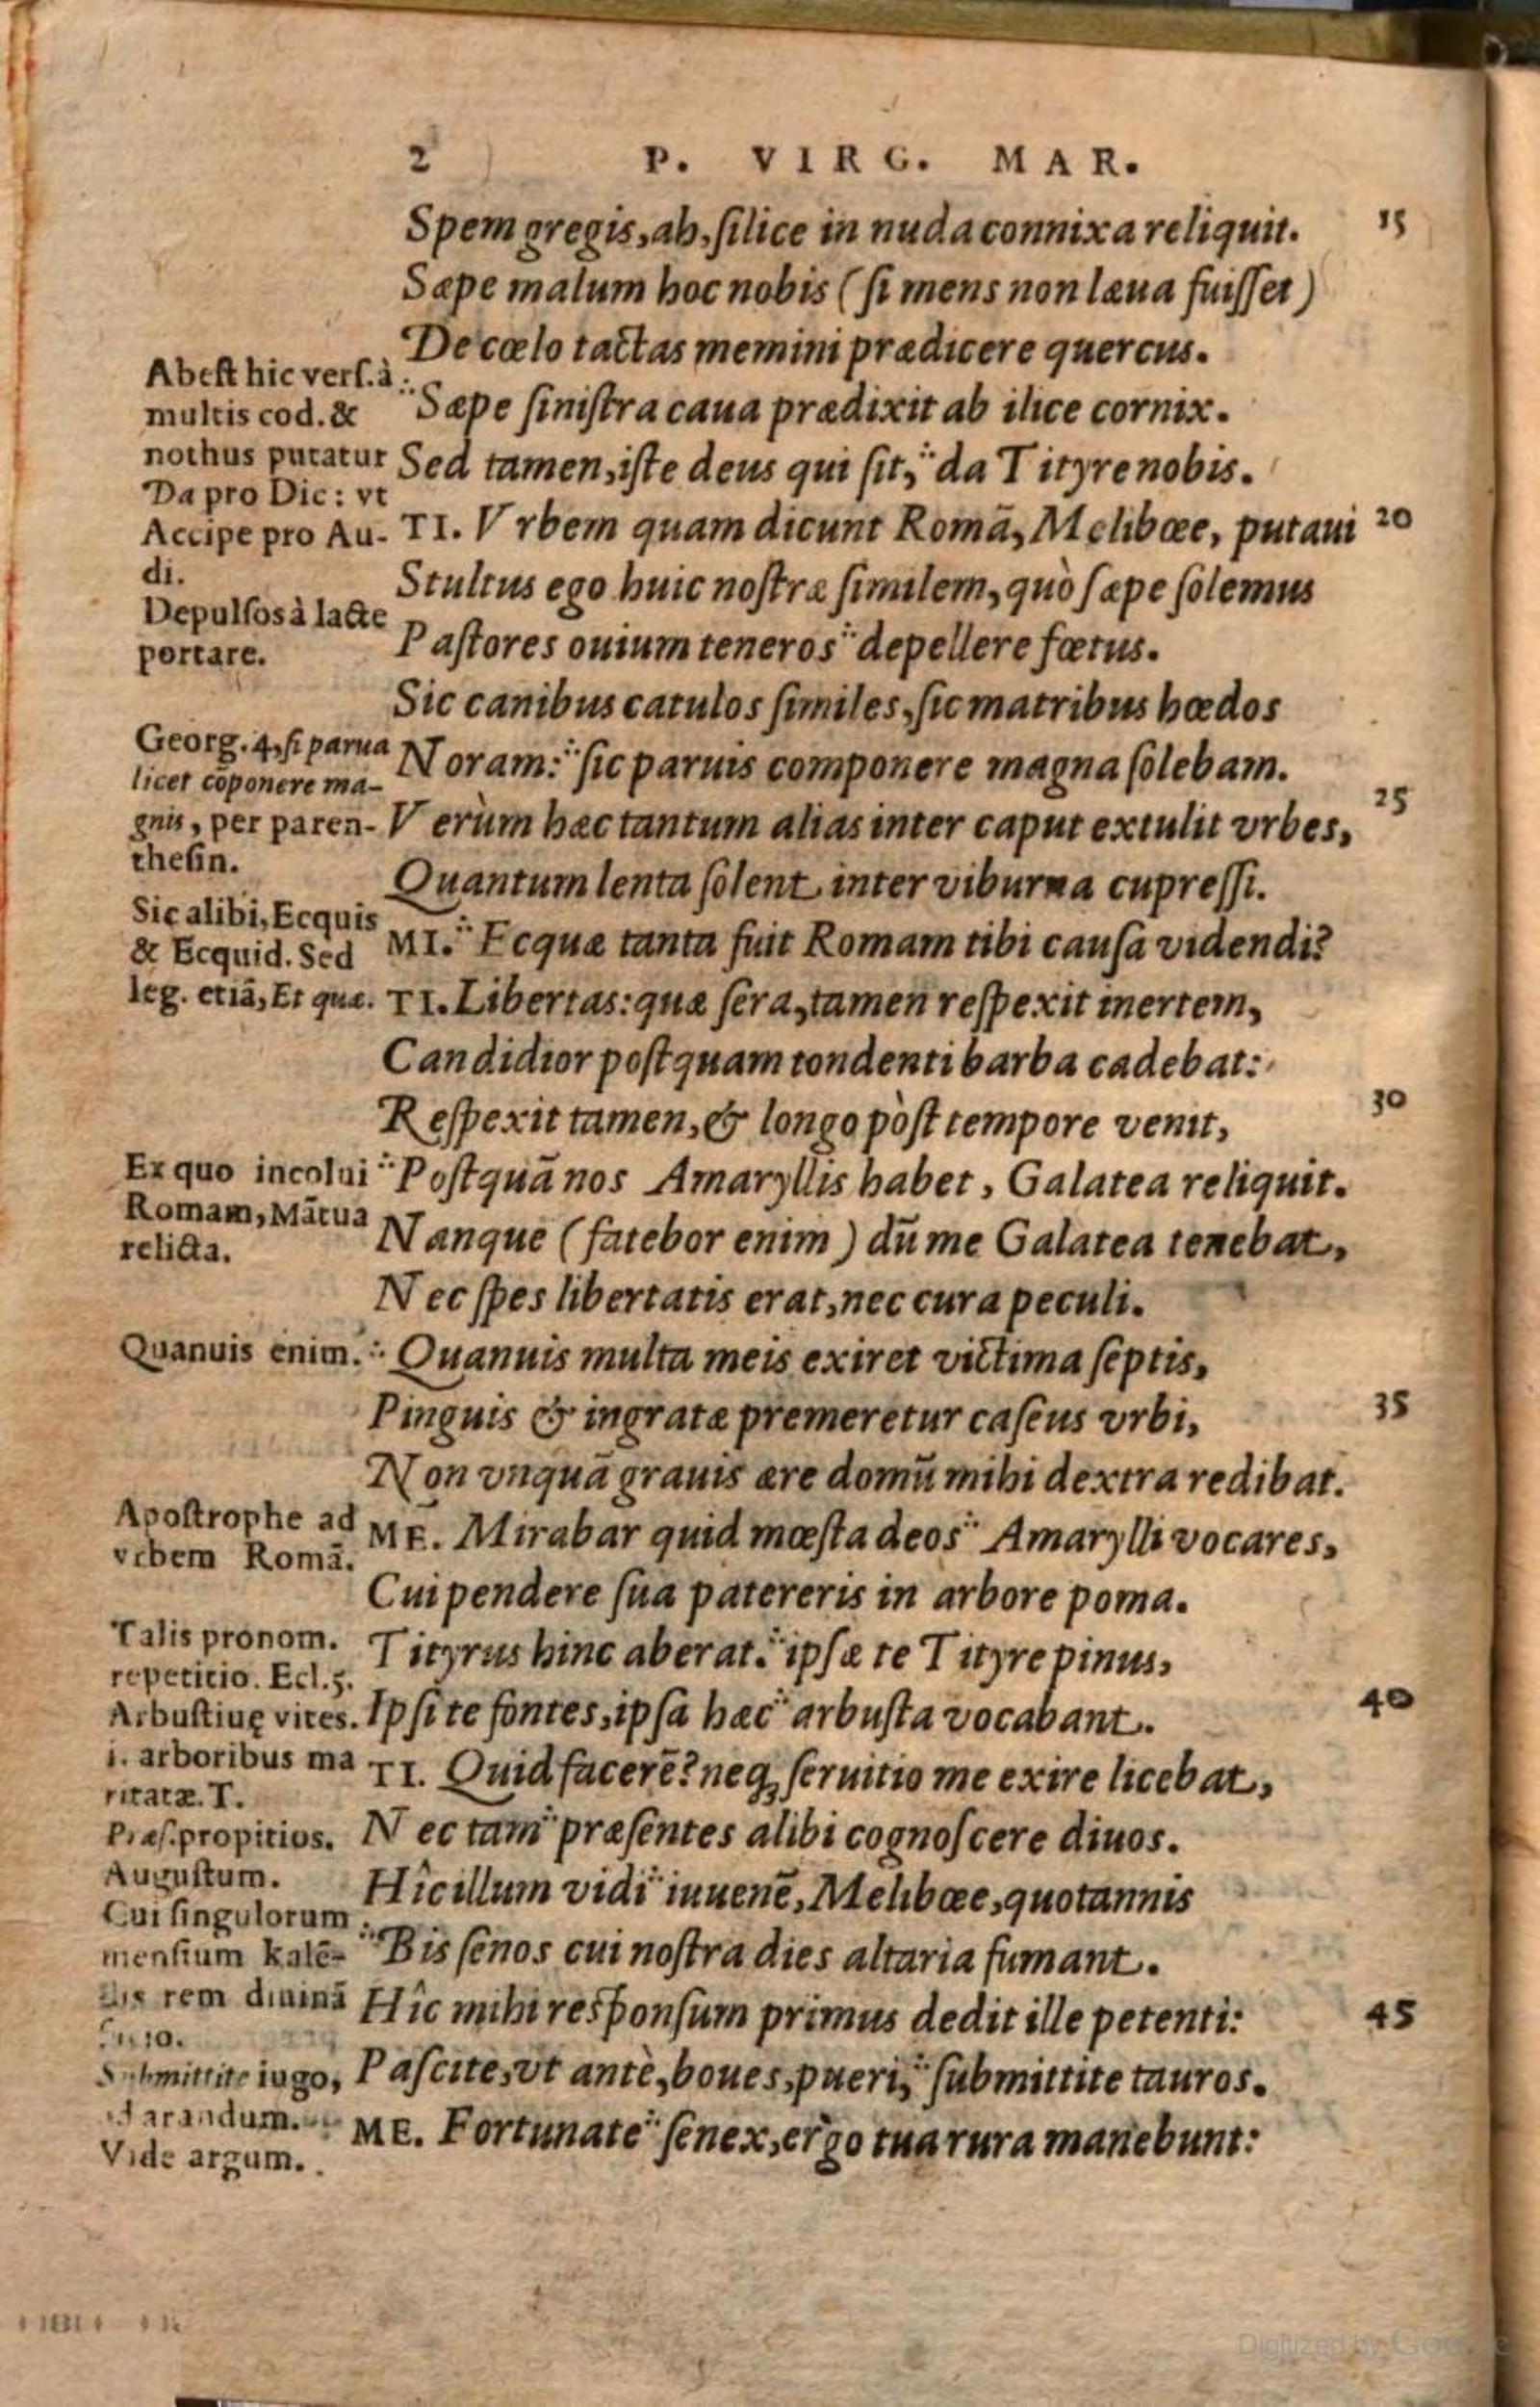 2 P. VIRG. MAR.
Spem gregis, ah, ſilice in nuda connixa reliquit. 15
Sæpe malum hoc nobis (ſi mens non læua fuiſſet)
De cœlo tactas memini prædicere quercus.
Sæpe ſiniſtra caua prædixit ab ilice cornix.
Sed tamen, iſte deus qui ſit, da Tityre nobis.
TI. Vrbem quam dicunt Romã, Melibœe, putaui 20
Stultus ego huic noſtræ ſimilem, quò ſæpe ſolemus
Paſtores ouium teneros depellere fœtus.
Sic canibus catulos ſimiles, ſic matribus hœdos
Noram: ſic paruis componere magna ſolebam.
Verùm hæc tantum alias inter caput extulit vrbes, 25
Quantum lenta ſolent inter viburna cupreſſi.
MI. Ecquæ tanta fuit Romam tibi cauſa videndi?
TI. Libertas: quæ ſera, tamen reſpexit inertem,
Candidior poſtquam tondenti barba cadebat:
Reſpexit tamen, & longo pòſt tempore venit, 30
Poſtquã nos Amaryllis habet, Galatea reliquit.
Nanque (fatebor enim) dũ me Galatea tenebat,
Nec ſpes libertatis erat, nec cura peculi.
Quanuis multa meis exiret victima ſeptis,
Pinguis & ingratæ premeretur caſeus vrbi, 35
Non vnquã grauis ære domũ mihi dextra redibat.
ME. Mirabar quid mœſta deos Amarylli vocares,
Cui pendere ſua patereris in arbore poma.
Tityrus hinc aberat. ipſæ te Tityre pinus,
Ipſi te fontes, ipſa hæc arbuſta vocabant. 40
TI. Quid facerẽ? neq; ſeruitio me exire licebat,
Nec tam præſentes alibi cognoſcere diuos.
Hîc illum vidi iuuenẽ, Melibœe, quotannis
Bis ſenos cui noſtra dies altaria fumant.
Hîc mihi reſponſum primus dedit ille petenti: 45
Paſcite, vt antè, boues, pueri, ſubmittite tauros.
ME. Fortunate ſenex, ergo tua rura manebunt:
Abeſt hic verſ. à
multis cod. &
nothus putatur
Da pro Dic: vt
Accipe pro Au-
di.
Depulſos à lacte
portare.
Georg. 4, ſi parua
licet cõponere ma-
gnis, per paren-
theſin.
Sic alibi, Ecquis
& Ecquid. Sed
leg. etiã, Et quæ.
Ex quo incolui
Romam, Mãtua
relicta.
Quanuis enim.
Apoſtrophe ad
vrbem Romã.
Talis pronom.
repetitio. Ecl. 5.
Arbuſtiuę vites.
i. arboribus ma
ritatæ. T.
Præſ. propitios.
Auguſtum.
Cui ſingulorum
menſium kalẽ-
rem diuinã
Submittite iugo,
arandum.
Vide argum.
Digitized by Google